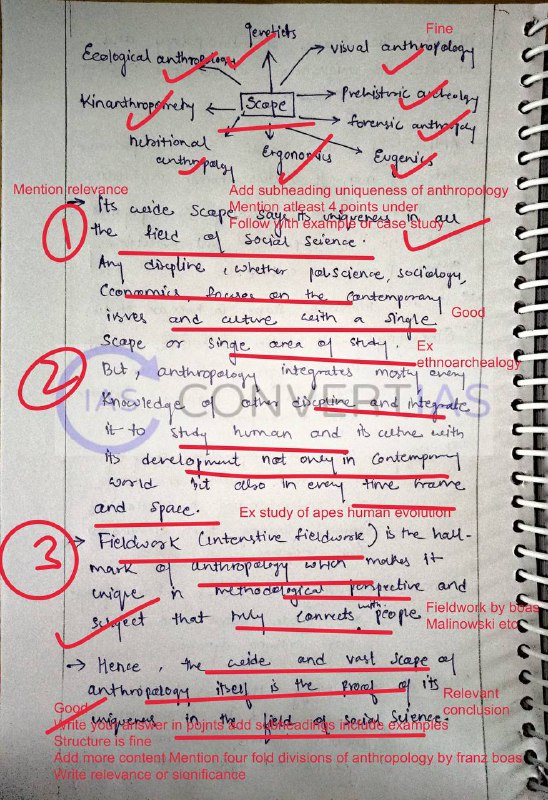 genetics
Fine
Ecological anthropology
visual anthropology
Kinanthropometry
Scope
Prehistoric archeology
forensic anthropology
Nutritional anthropology
Ergonomics
Eugenics
Mention relevance
Add subheading uniqueness of anthropology
Mention atleast 4 points under
Follow with example or case study
→ Its wide scope says its uniqueness in all
1
the field of social science.
Any discipline, whether polscience, sociology,
Economics, focuses on the contemporary
issues and culture with a single
Good
scope or single area of study.
Ex
ethnoarchealogy
2
But, anthropology integrates mostly every
knowledge of other discipline and integrate
IAS CONVERTIAS
it to study human and its culture with
its development not only in contemporary
world bit also in every time frame
and space.
Ex study of apes human evolution
3
→ Fieldwork (intenstive fieldwork) is the hall-
mark of anthropology which makes it
unique in methodological perspective and
subject that truly connects with people
Fieldwork by boas
Malinowski etc
→ Hence, the wide and vast scope of
anthropology itself is the proof of its
Relevant
conclusion
uniqueness in the field of social science.
Good
Write your answer in points add subheadings include examples
Structure is fine
Add more content Mention four fold divisions of anthropology by franz boas
Write relevance or significance